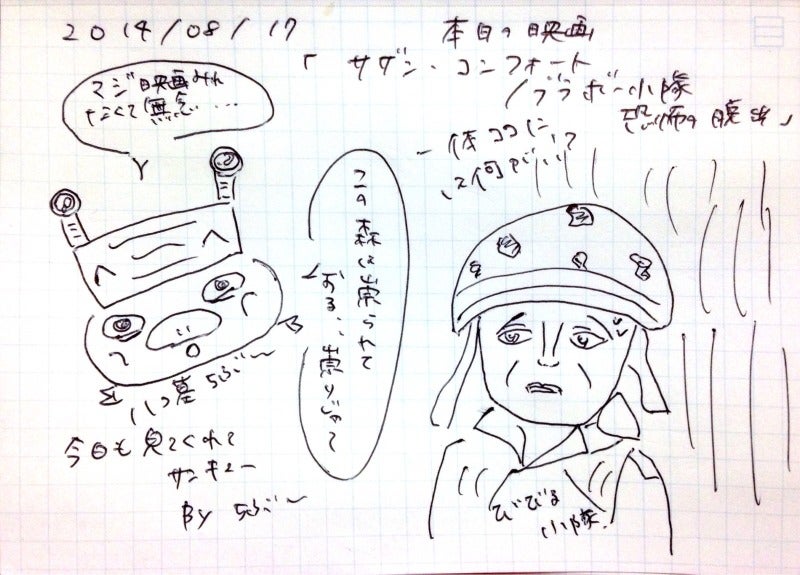 2014/08/17
本日の映画
「サザン・コンフォート
/ブラボー小隊
恐怖の脱出」
マジ映画みれ
なくて無念...
一体ココに
って何が
この森は祟られて
おる、、祟りじゃて
八つ墓ちぶ〜
今日も見てくれて
サンキュー
By ちぶ〜
びびる
小隊.